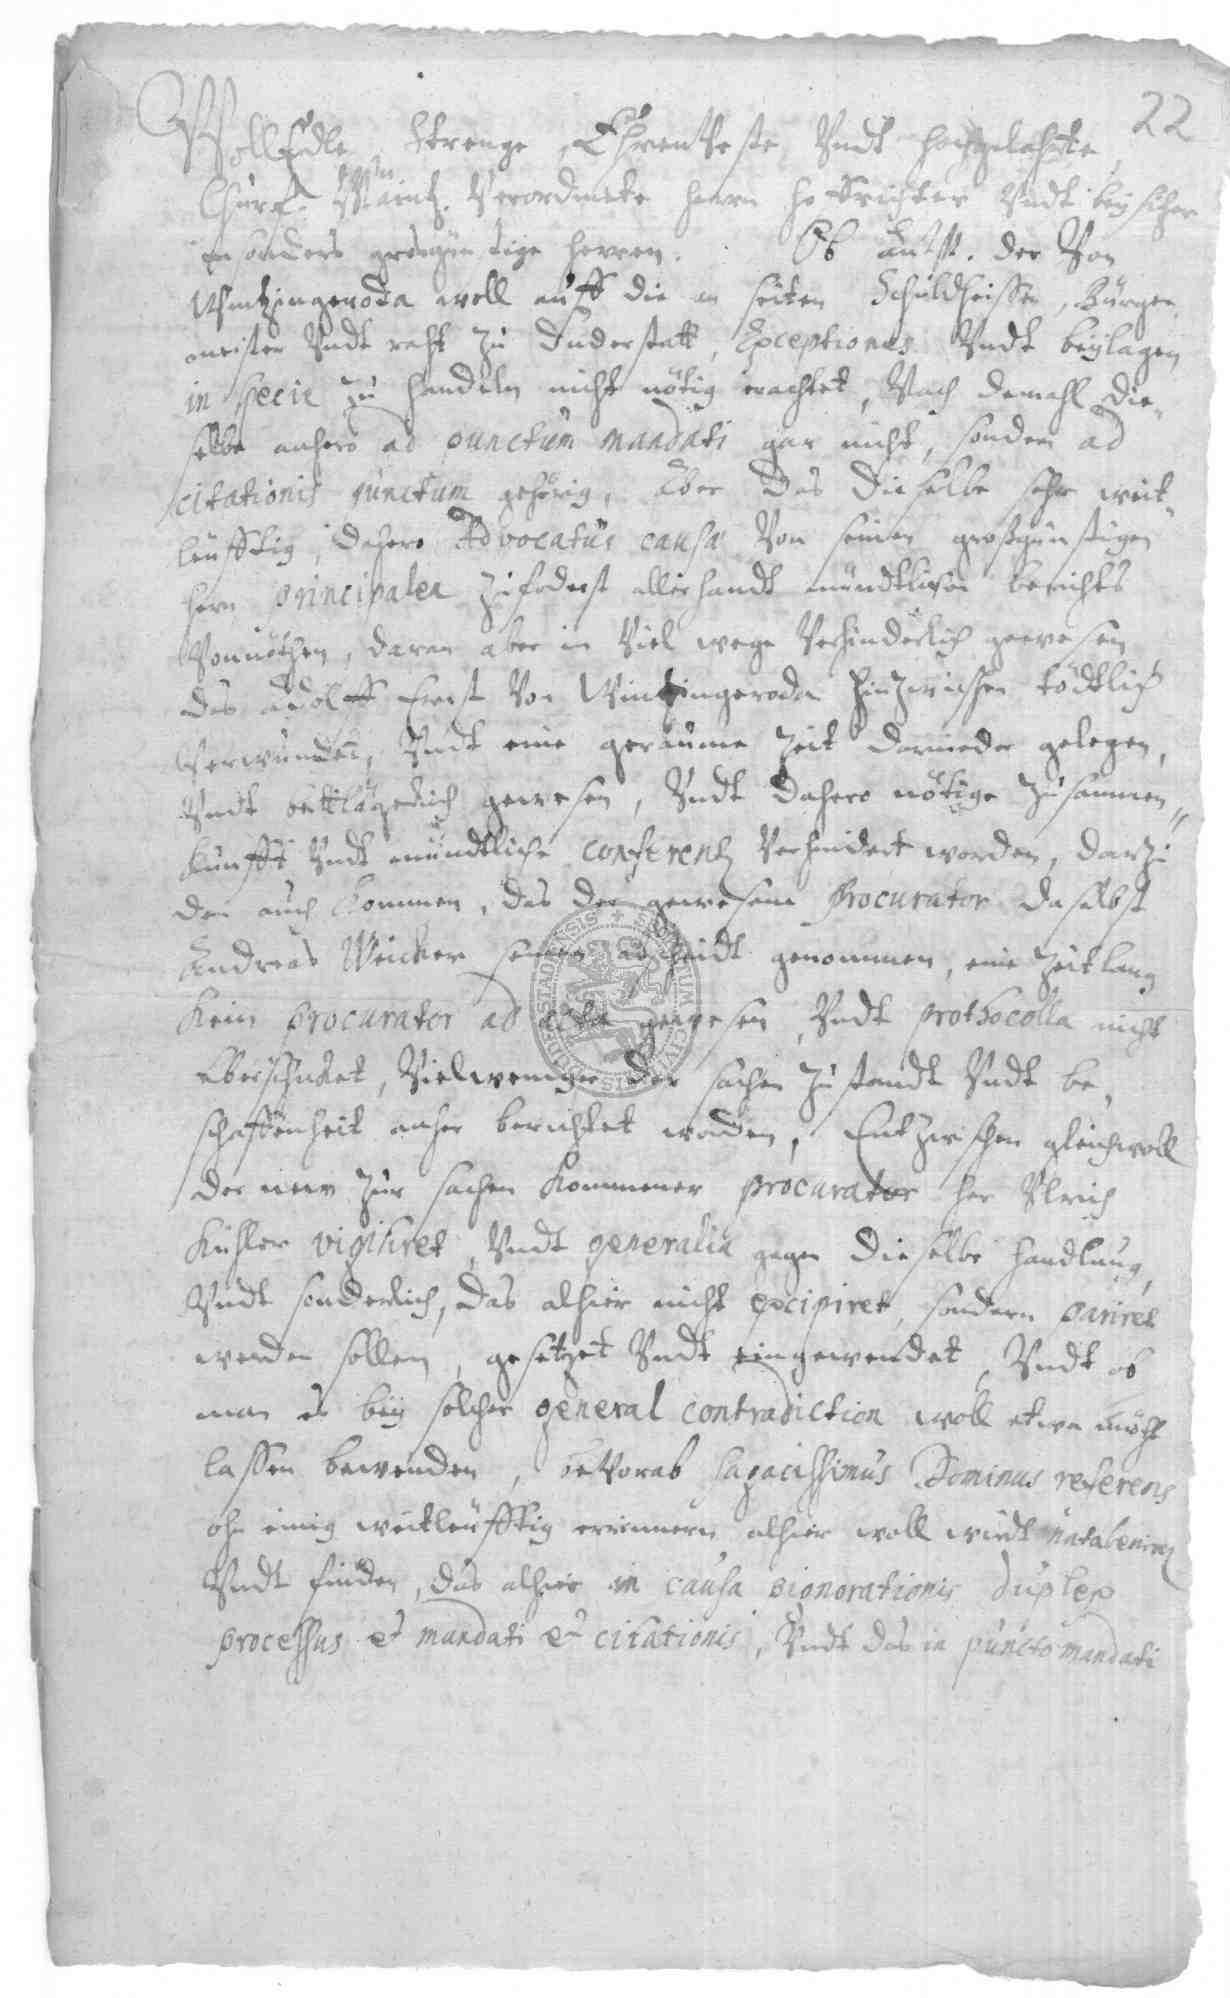 22
WollEdle, Strenge, EhrenVeste Vndt hochgelahrte,
Churf. Maintz. Verordnete herrn hoffrichter Vndt beysitzer
insonders grosgünstige herren. Ob Anw. der Von
Wintzingeroda woll auff die an seiten Schuldheissen, Bürger,
meister Vndt raht zu Duderstatt, Exceptiones Vndt beylagen
in specie zu handeln nicht nötig erachtet, Nach demahl die„
selbe anhero ad punctum mandati gar nicht, sondern ad
citationis punctum gehörig, Aber das dieselbe sehr weit„
leufftig, dahero Advocatus causa Von seinen großgünstigen
hern principalen zuforderst allerhandt mündtlichen berichts
Vonnöthen, daran aber in Viel wege Verhinderlich gewesen
das Adolff Ernst Von Wintzingeroda hinzwischen tödtlich
Verwundet, Vndt eine geraume zeit darnieder gelegen,
Vndt bettlägerich gewesen, Vndt dahero nötige zusammen„
kunfft Vndt mündtliche conferentz Verhindert worden, darzu
den auch kommen, das der gewesene Procurator daselbst
Andreas Weicker seinen abscheidt genommen, eine zeitlang
kein procurator ad acta gewesen, Vndt prothocolla nicht
Uberschicket, Vielweniger der sachen zustandt Vndt be„
schaffenheit anher berichtet worden, Entzwischen gleichwoll
der new zur sachen kommener procurator her Vlrich
Kuhler vigiliret, Vndt generalia gegen dieselbe handlung,
Vndt sonderlich, das alhier nicht excipiret, sondern pariret
werden sollen, gesetzet Vndt eingewendet, Vndt ob
man es bey solcher general contradiction woll etwa möcht
lassen bewenden, beVorab sagacissimus Dominus referens
ohn einig weitleufftig erinnern alhier woll wirdt
Vndt finden, das alhier in causa pignorationis duplex
processus et mandati et citationis, Vndt das in puncto mandati